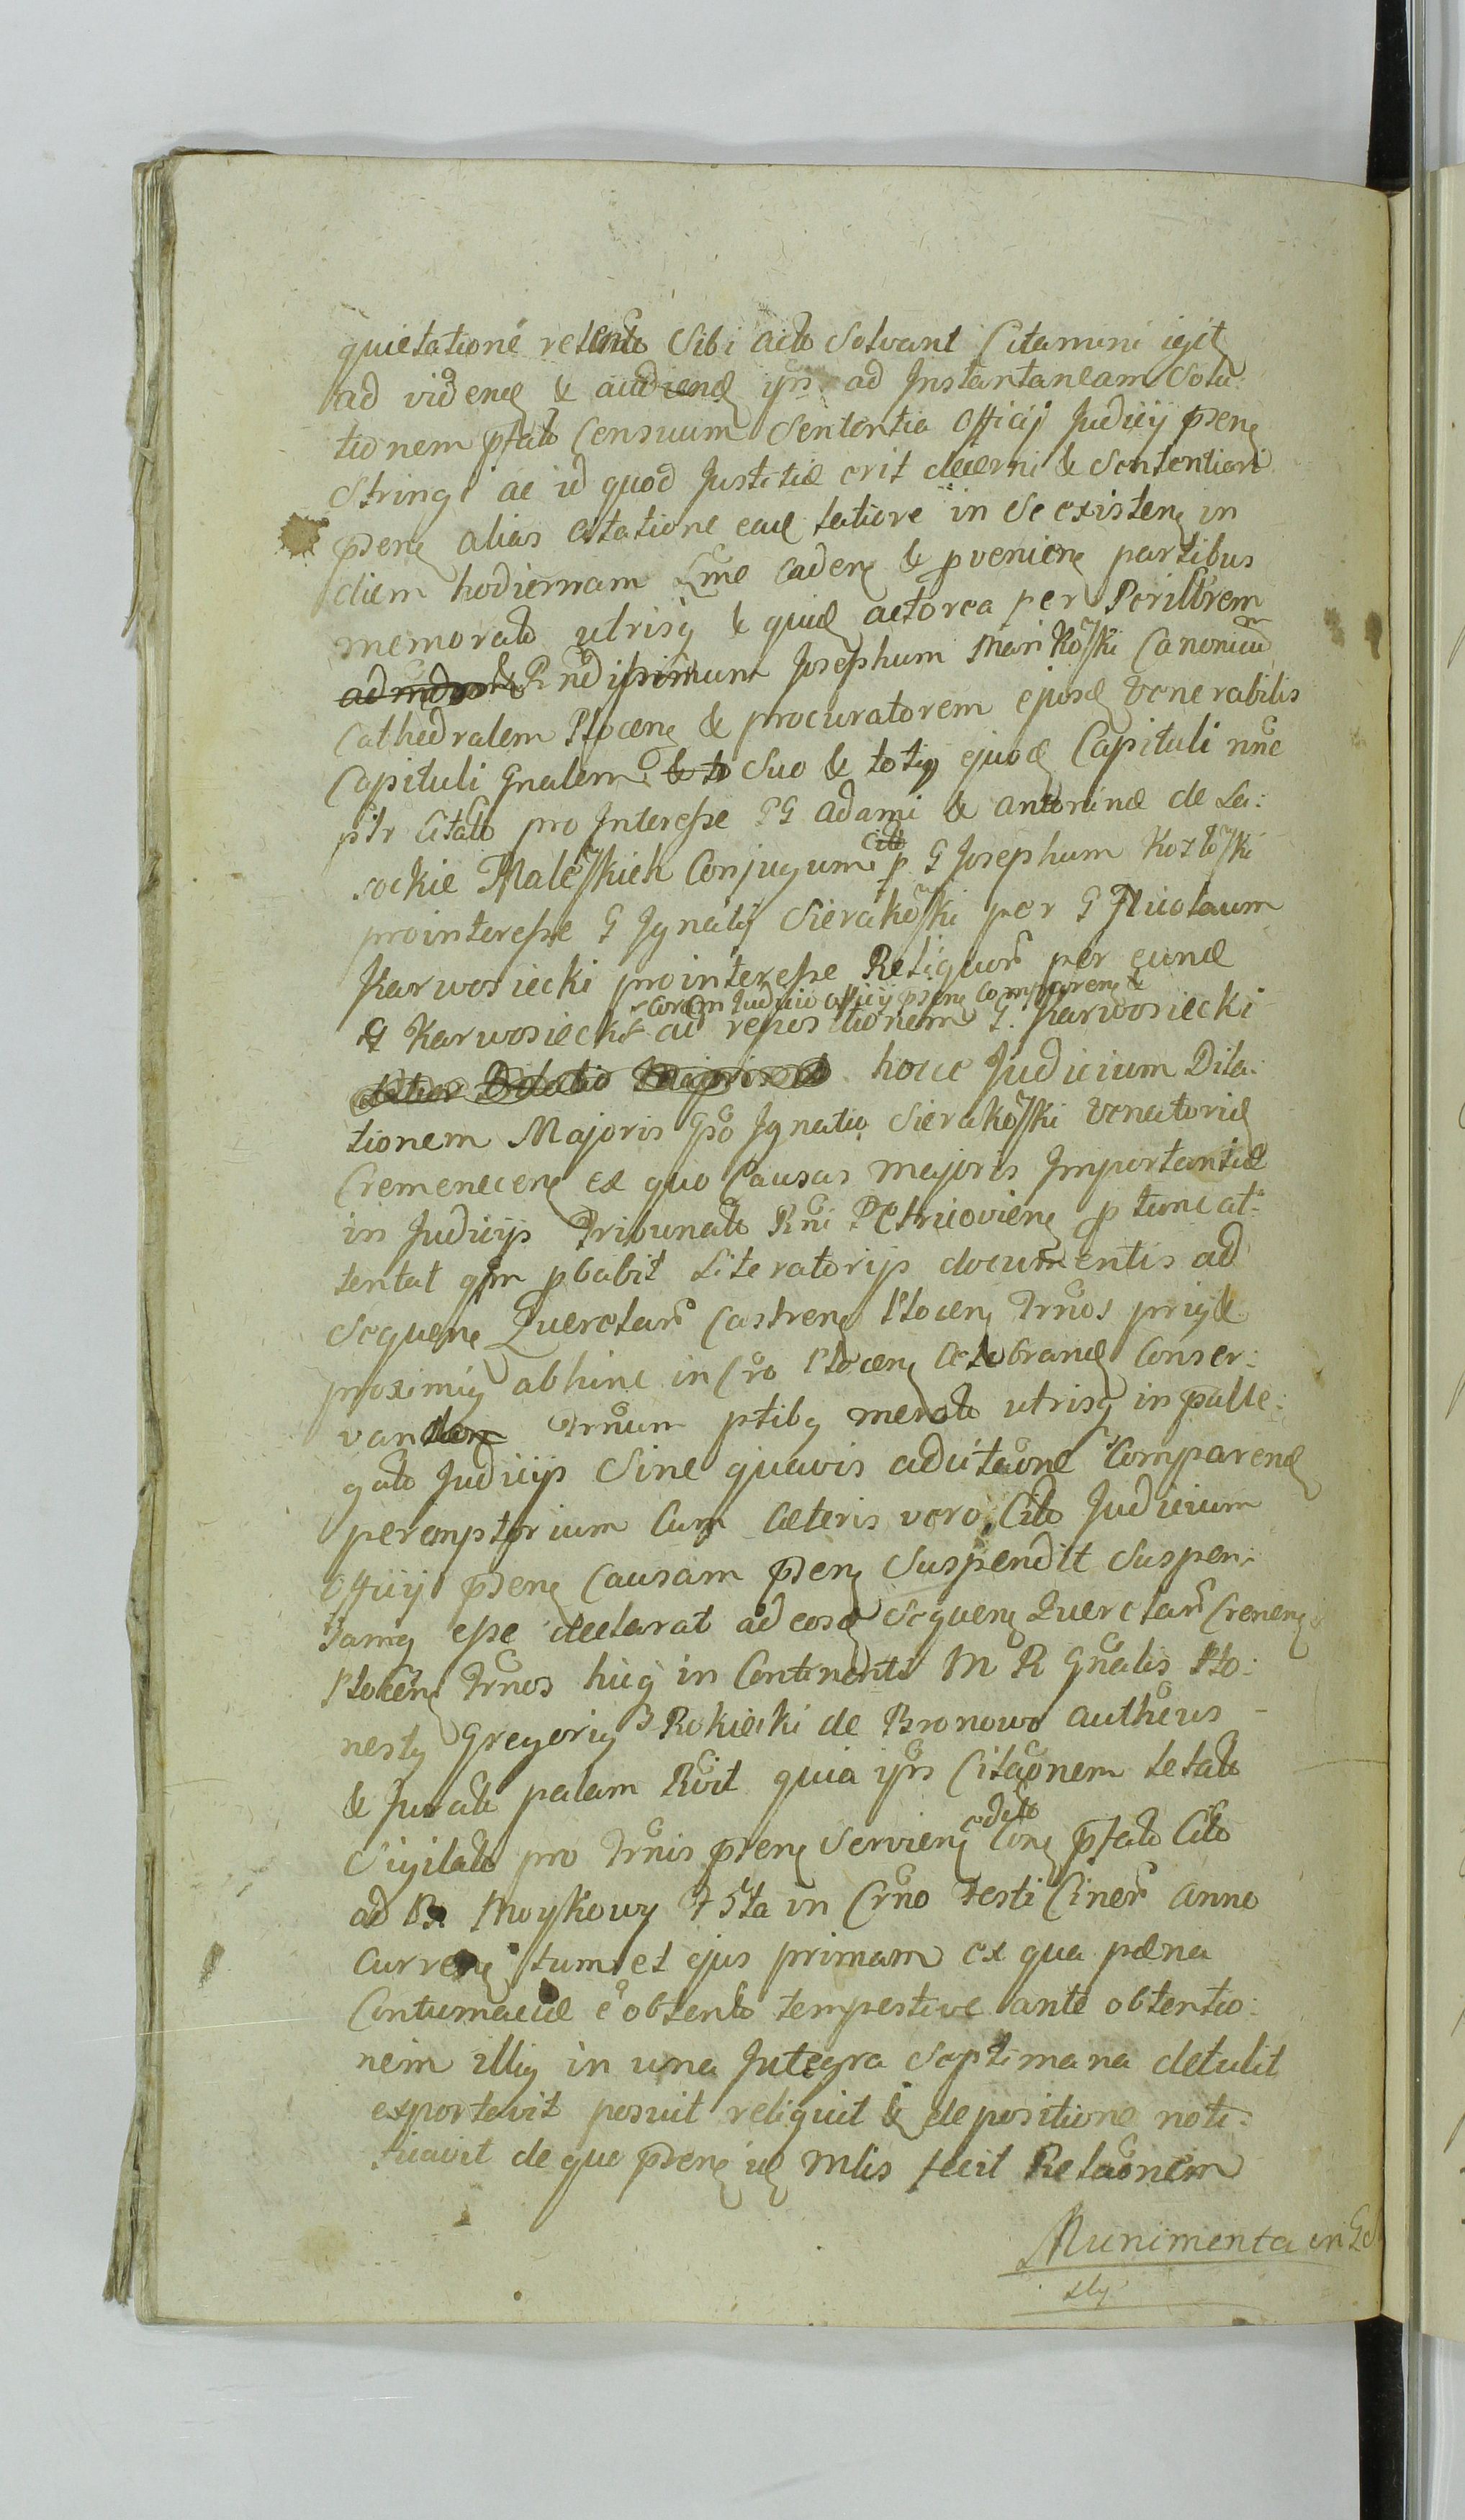 quietatione retento Sibi acto Solvant Citamini igit
ad vidend & audiend ips ad Instantaneam Solu:
tionem pfato Censuum Sententia Officij Judicij psens
Stringi ac id quod Justitiæ erit decerni & Sententiari
psens alias Citatione eade latiore in Se existens in
diem hodiernam Lme cadens & pveniens partibus
memorato utrisq & quid actorea per Perillrem
Rndissimum Josephum Mankowski Canonicum
Cathedralem Plocens & procuratorem ejusd Venerabilis
Capituli Gnalem Suo & totiq ejusd Capituli nne
pstr Citato pro Interesse GG Adami & Antoninæ de La:
sockie Malewskich Conjugum Cito p G Josephum Kozłowski
pro interesse G Ignatij Sierakowski per G Nicolaum
Karwosiecki pro interesse Reliquor per eund
G Karwosiecki coram Judicio officij psens comparens &
ad repositionem G. Karwosiecki
hocce Judicium Dila:
tionem Majoris Gso Ignatio Sierakowski Venatorid
Cremenecens ex quo Causas majoris Importantiæ
in Judicijs Tribunato Rni Petricoviens p tunc at:
tentat qm pbabit Literatorijs documentis ad
Sequens Querelar Castrens Plocens Trnos priq &
proximiq abhinc in Cro Plocens Celebrand Conser:
vandam Trnum ptibq merato utrisq in palle:
gato Judicijs Sine quavis adcitaone Comparend
peremptorium Cum Cæteris vero Cito Judicium
Officij psens Causam psens Suspendit Suspen:
samq esse declarat ad eosd Sequens Querelar Crenens
Plocens Trnos huiq in Continenti M R Gnalis Ho:
nestq Gregoriq Rokicki de Bronowo authcus
& Jurato palam Rvit quia ips Citaonem letato
Sigilato pro Trnis psens Serviens Cons pfato Cito
ad B. Moykowy f 5ta in Crno Festi Ciner anno
Currens tum et ejus primam ex qua pæna
Contumaciæ e obtento tempestive ante obtentio:
nem illiq in una Integra Septimana detulit
exportavit posuit reliquit & depositione noti:
ficavit de quo psens id Mlis fecit Relaonem
Munimenta in